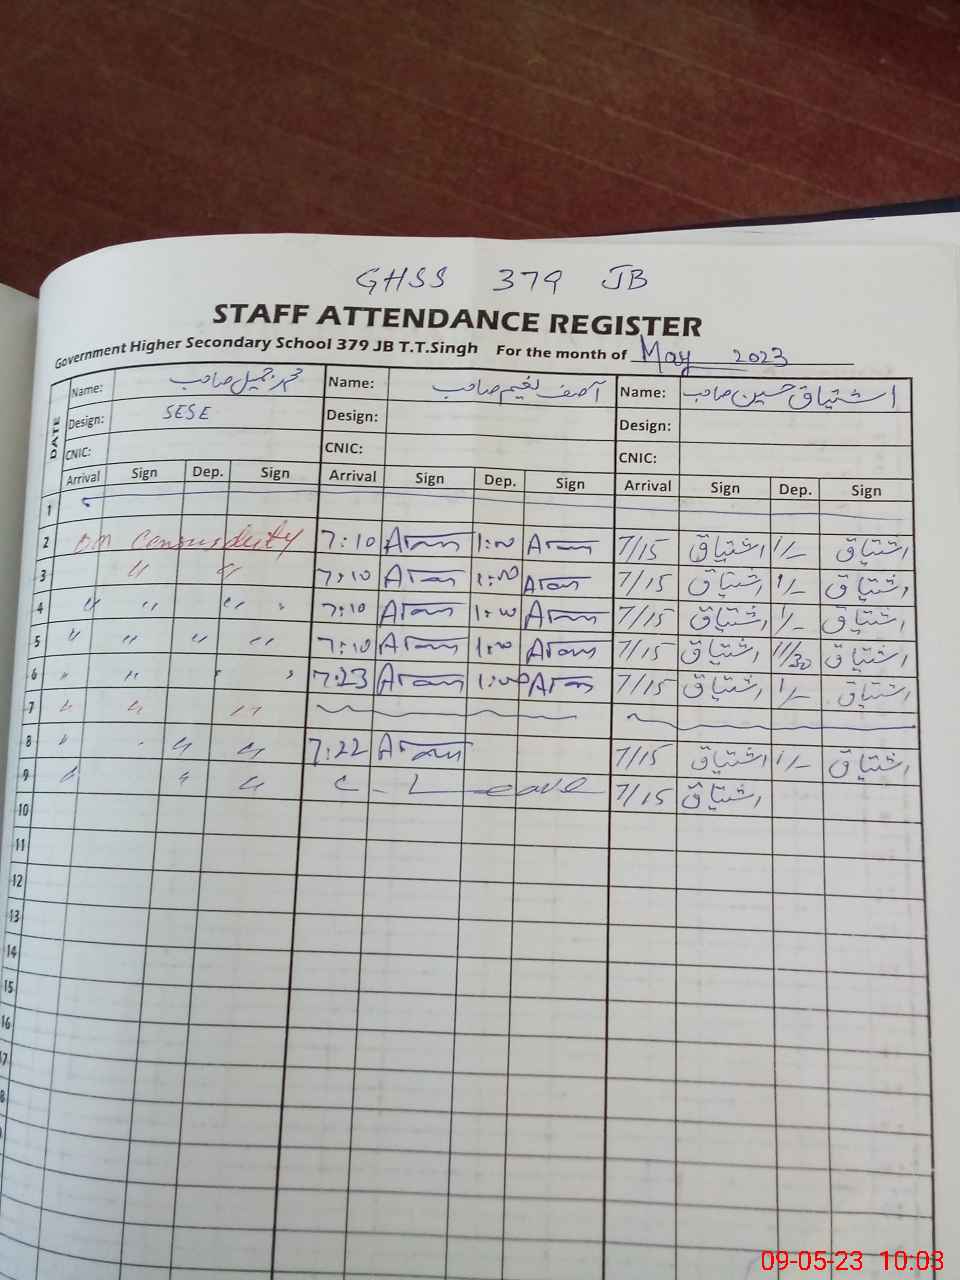 GHSS 379 JB
STAFF ATTENDANCE REGISTER
Government Higher Secondary School 379 JB T.T.Singh For the month of May 2023
DATE
Name: محمد جمیل صاحب Name: آصف نعیم صاحب Name: اشتیاق حسین صاحب
Design: SESE Design: Design:
CNIC: CNIC: CNIC:
Arrival Sign Dep. Sign Arrival Sign Dep. Sign Arrival Sign Dep. Sign
1
2 on Census duity 7:10 1:00 7/15 اشتیاق 1/- اشتیاق
3 " " 7:10 1:00 7/15 اشتیاق 1/- اشتیاق
4 " " " " 7:10 1:00 7/15 اشتیاق 1/- اشتیاق
5 " " " " 7:10 1:00 7/15 اشتیاق 11/30 اشتیاق
6 " " " " 7:23 1:00 7/15 اشتیاق 1/- اشتیاق
7 " " "
8 " " " " 7:22 7/15 اشتیاق 1/- اشتیاق
9 " " " C. Leave 7/15 اشتیاق
10
11
12
13
14
15
16
09-05-23 10:03